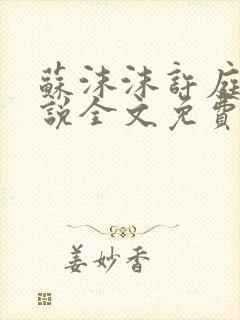 蘇沫沫許庭
說全文免費
姜妙香